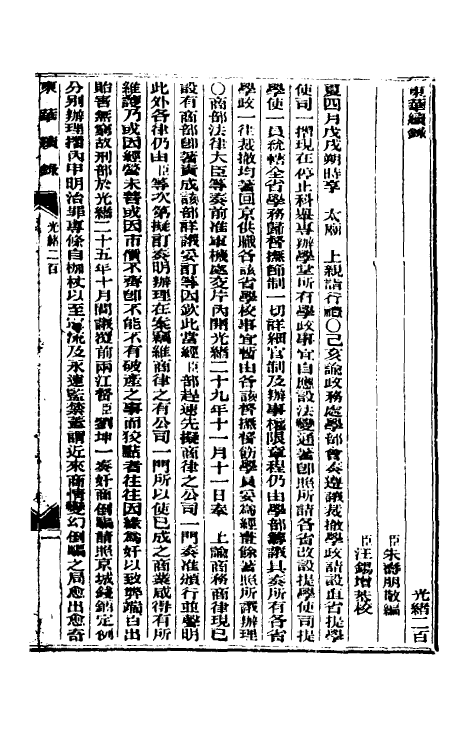 東華續錄
光緒二百
臣朱壽朋敬編
臣汪錫增恭校
夏四月戊戌朔時享　太廟　上親詣行禮〇己亥諭政務處學部會奏遵議裁撤學政請設直省提學
使司一摺現在停止科舉專辦學堂所有學政事宜自應設法變通著即照所請各省改設提學使司提
學使一員統轄全省學務歸督撫節制一切詳細官制及辦事權限章程仍由學部籌議具奏所有各省
學政一律裁撤均著回京供職各該省學校事宜暫由各該督撫督飭學員妥為經畫餘著照所議辦理
〇商部法律大臣等奏前准軍機處交片內開光緒二十九年十一月十一日奉　上諭商務商律現已
設有商部即著責成該部詳議妥訂等因欽此當經臣部趕速先擬商律之公司一門奏准頒行並聲明
此外各律仍由臣等次第擬訂奏明辦理在案竊維商律之有公司一門所以使已成之商業咸得有所
維護乃或因經營未善或因市價不齊即不能不有破產之事而狡黠者往往因緣為奸以致弊端百出
貽害無窮故刑部於光緒二十五年十月間議覆前兩江督臣劉坤一奏奸商倒騙請照京城錢鋪定例
分別辦理摺內申明治罪專條自枷杖以至軍流及永遠監禁蓋謂近來商情變幻倒騙之局愈出愈奇
東華續錄
光緒二百
一